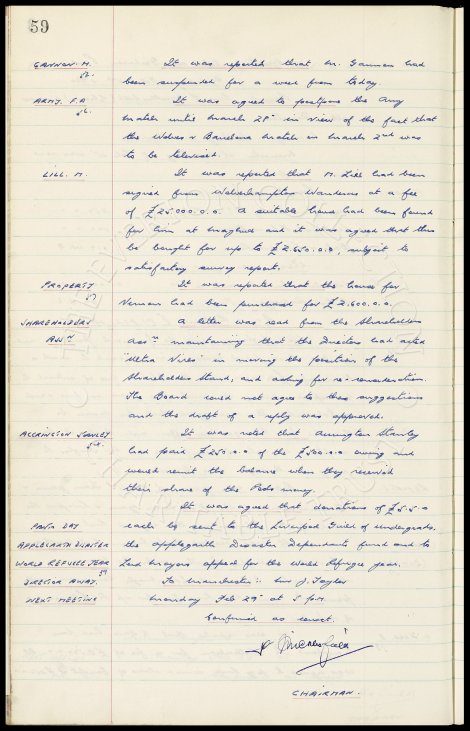 59
GANNON. M. It was reported that M. Gannon had
56. been suspended for a week from today.
ARMY. F.A. It was agreed to postpone the Army
56. match until March 28th in view of the fact that
the Wolves v Barcelona match on March 2nd was
to be televised.
LILL. M. It was reported that M. Lill had been
signed from Wolverhampton Wanderers at a fee
of £25.000.0.0. A suitable house had been found
for him at Maghull and it was agreed that this
be bought for up to £2.650.0.0, subject to
satisfactory survey report.
PROPERTY It was reported that the house for
57 Vernon had been purchased for £2.600.0.0.
SHAREHOLDERS A letter was read from the Shareholders
ASSN Assn maintaining that the Directors had acted
"Ultra Vires" in moving the position of the
Shareholders Stand, and asking for re-consideration.
The Board could not agree to these suggestions
and the draft of a reply was approved.
ACCRINGTON STANLEY It was noted that Accrington Stanley
58. had paid £250.0.0 of the £500.0.0 owing and
would remit the balance when they received
their share of the Pools money.
It was agreed that donations of £5.5.0
PANTO DAY each be sent to the Liverpool Guild of Undergrads.
APPLEGARTH DISASTER the Applegarth Disaster Dependants fund and to
WORLD REFUGEE YEAR Lord Mayors appeal for the World Refugee year.
59
DIRECTOR AWAY. To Manchester :- Mr J. Taylor
NEXT MEETING Monday Feb 29th at 5 p.m.
Confirmed as correct.
CHAIRMAN.